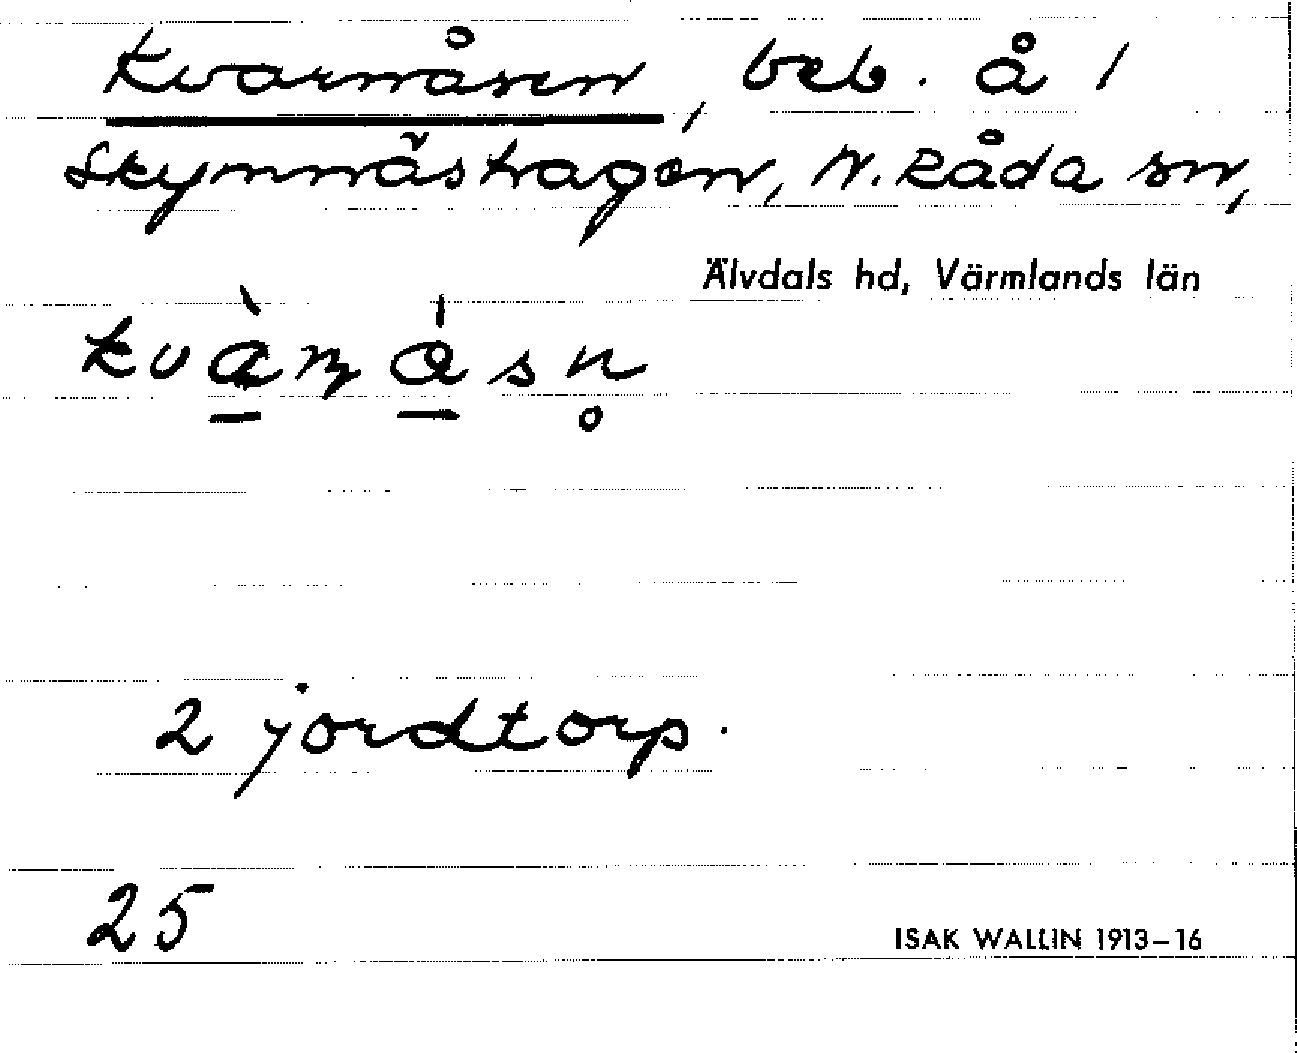 Kvarnåsen, beb. å /
Skymnäshagen, N. Råda sn,
Älvdals hd, Värmlands län
2 jordtorp.
25
ISAK WALLIN 1913–16